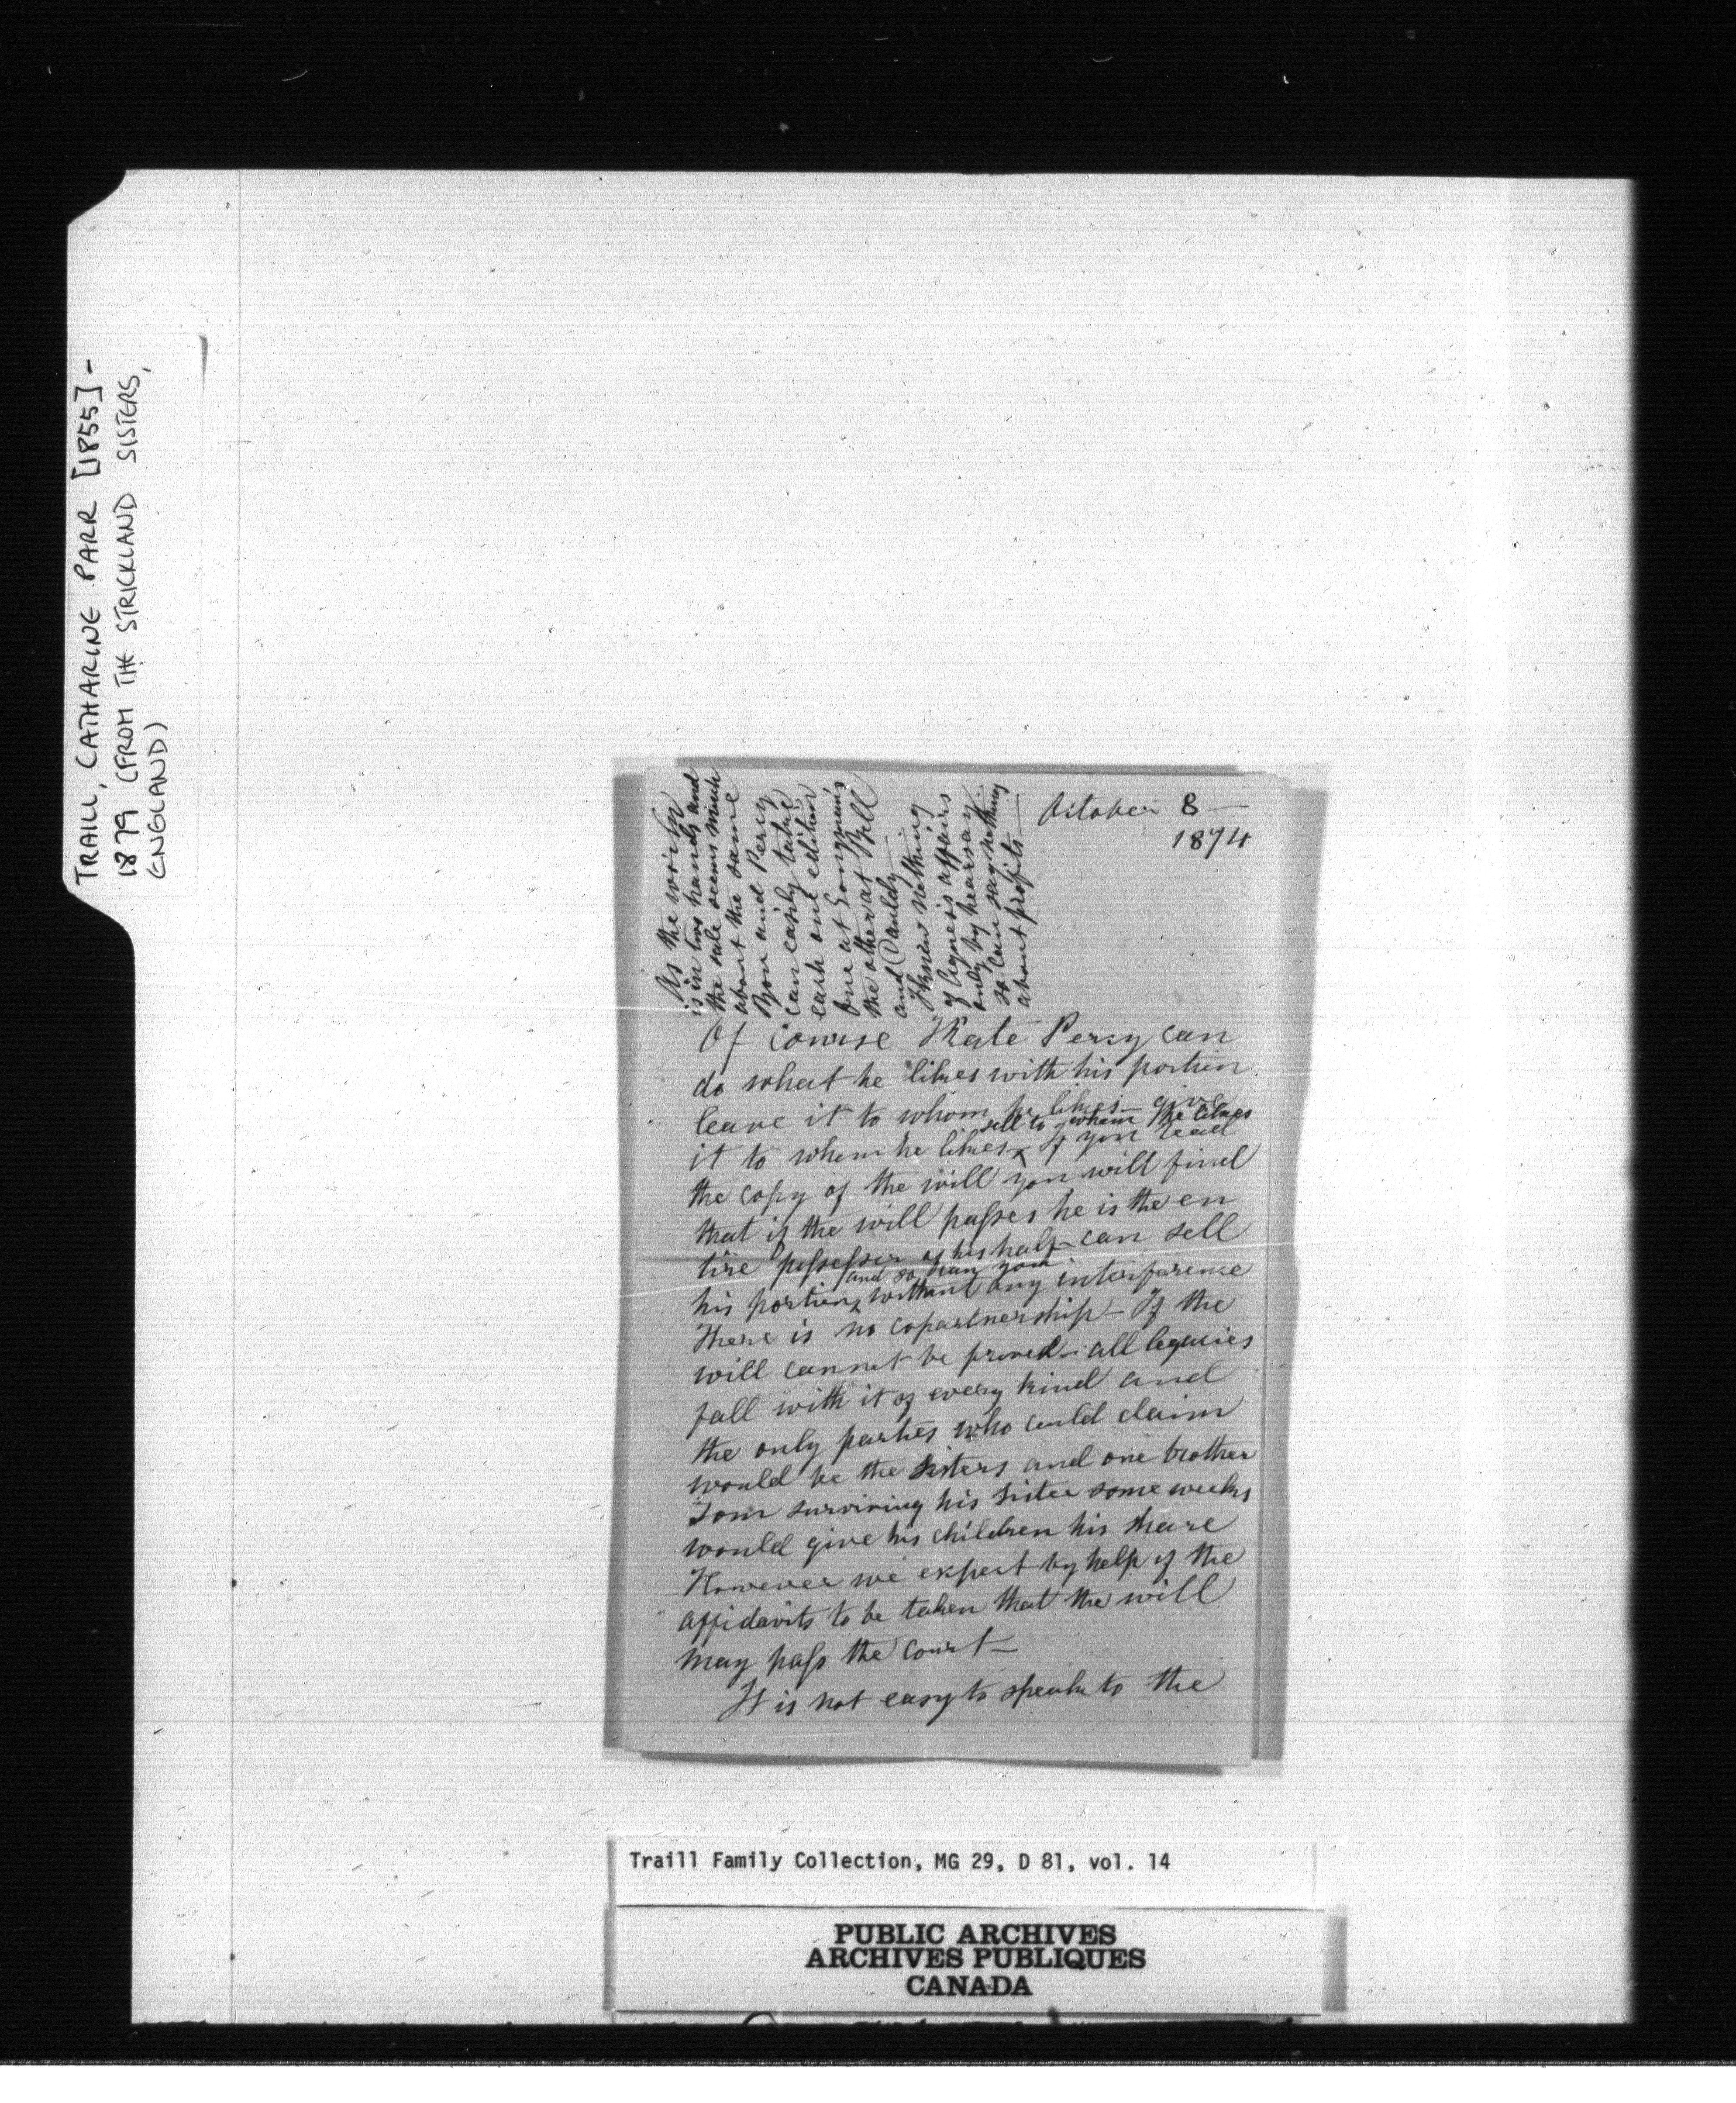 TRAILL, CATHARINE PARR [1855] -
1879 (FROM THE STRICKLAND SISTERS,
ENGLAND)
October 8 —
1874
As the work
is in two hands and
the sale seems much
about the same
You and Percy
can easily take
each one edition
one at Longman's
the other at Bell
and Dauldy —
I know nothing
of Agnes's affairs
only by hearsay —
so can say nothing
about profits —
Of course Kate Percy can
do what he likes with his portion
leave it to whom he likes — give
sell to whom he likes
it to whom he likes x If you read
the copy of the will you will find
that if the will passes he is the en
tire possessor of his half — can sell
and so can you
his portion x without any interference
There is no copartnership — If the
will cannot be proved — all legacies
fall with it of every kind and
the only parties who could claim
would be the sisters and one brother
Tom surviving his sister some weeks
would give his children his share
However we expect by help of the
affidavits to be taken that the will
may pass the court —
It is not easy to speak to the
Traill Family Collection, MG 29, D 81, vol. 14
PUBLIC ARCHIVES
ARCHIVES PUBLIQUES
CANADA